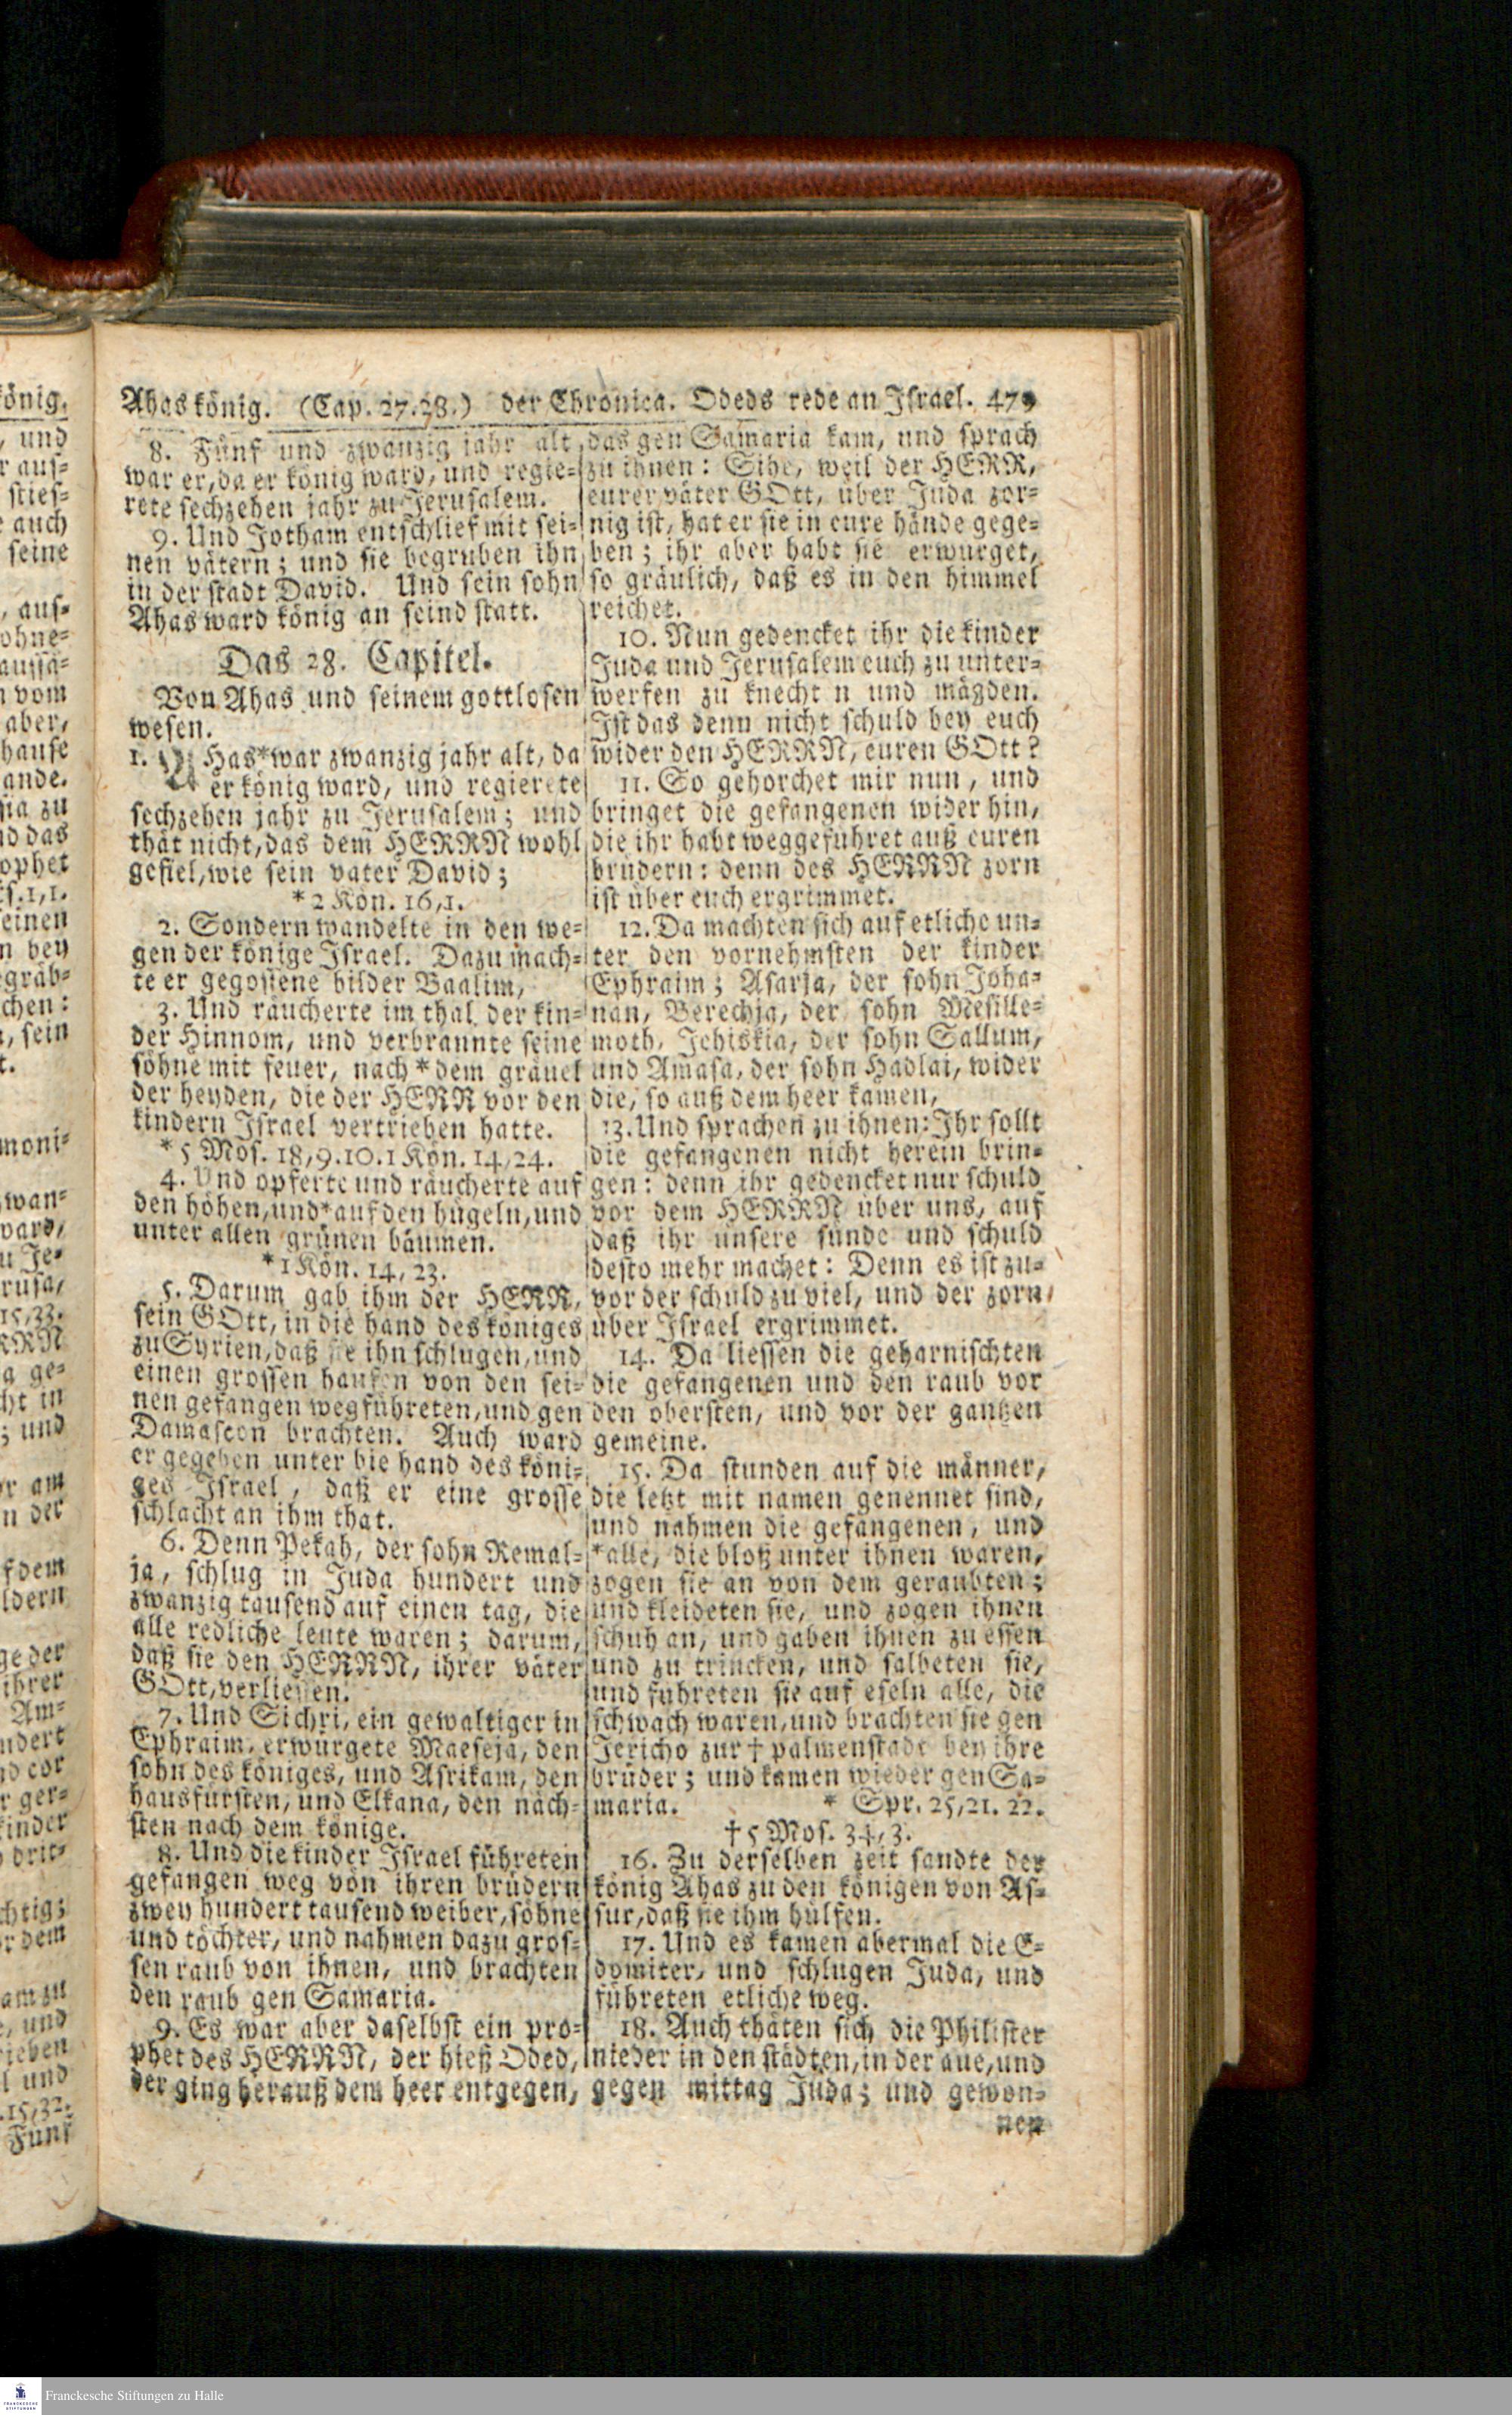 Ahas könig. (Cap. 27.28.) der Chronica. Odeds rede an Israel. 479
8. Fünf und zwanzig jahr alt
war er, da er könig ward, und regie-
rete sechzehen jahr zu Jerusalem.
9. Und Jotham entschlief mit sei-
nen vätern; und sie begruben ihn
in der stadt David. Und sein sohn
Ahas ward könig an seind statt.
Das 28. Capitel.
Von Ahas und seinem gottlosen
wesen.
1. AHas* war zwanzig jahr alt, da
er könig ward, und regierete
sechzehen jahr zu Jerusalem; und
thät nicht, das dem HERRN wohl
gefiel, wie sein vater David;
*2 Kön. 16,1.
2. Sondern wandelte in den we-
gen der könige Israel. Dazu mach-
te er gegossene bilder Baalim,
3. Und räucherte im thal der kin-
der Hinnom, und verbrannte seine
söhne mit feuer, nach * dem gräuel
der heyden, die der HERR vor den
kindern Israel vertrieben hatte.
*5 Mos. 18,9.10. 1 Kön. 14,24.
4. Und opferte und räucherte auf
den höhen, und* auf den hügeln, und
unter allen grünen bäumen.
*1 Kön. 14, 23.
5. Darum gab ihm der HERR,
sein GOtt, in die hand des königes
zu Syrien, daß sie ihn schlugen, und
einen grossen haufen von den sei-
nen gefangen wegführeten, und gen
Damascon brachten. Auch ward
er gegeben unter bie hand des köni-
ges Israel, daß er eine grosse
schlacht an ihm that.
6. Denn Pekah, der sohn Remal-
ja, schlug in Juda hundert und
zwanzig tausend auf einen tag, die
alle redliche leute waren; darum,
daß sie den HERRN, ihrer väter
GOtt, verliessen.
7. Und Sichri, ein gewaltiger in
Ephraim, erwürgete Maeseja, den
sohn des königes, und Asrikam, den
hausfürsten, und Elkana, den näch-
sten nach dem könige.
8. Und die kinder Israel führeten
gefangen weg von ihren brüdern
zwey hundert tausend weiber, söhne
und töchter, und nahmen dazu gros-
sen raub von ihnen, und brachten
den raub gen Samaria.
9. Es war aber daselbst ein pro-
phet des HERRN, der hieß Oded,
der ging herauß dem heer entgegen,
das gen Samaria kam, und sprach
zu ihnen: Sihe, weil der HERR,
eurer väter GOtt, über Juda zor-
nig ist, hat er sie in eure hände gege-
ben; ihr aber habt sie erwürget,
so gräulich, daß es in den himmel
reichet.
10. Nun gedencket ihr die kinder
Juda und Jerusalem euch zu unter-
werfen zu knecht n und mägden.
Ist das denn nicht schuld bey euch
wider den HERRN, euren GOtt?
11. So gehorchet mir nun, und
bringet die gefangenen wider hin,
die ihr habt weggeführet auß euren
brüdern: denn des HERRN zorn
ist über euch ergrimmet.
12. Da machten sich auf etliche un-
ter den vornehmsten der kinder
Ephraim; Asarja, der sohn Joha-
nan, Berechja, der sohn Mesille-
moth, Jehiskia, der sohn Sallum,
und Amasa, der sohn Hadlai, wider
die, so auß dem heer kamen,
13. Und sprachen zu ihnen: Ihr sollt
die gefangenen nicht herein brin-
gen: denn ihr gedencket nur schuld
vor dem HERRN über uns, auf
daß ihr unsere sünde und schuld
desto mehr machet: Denn es ist zu-
vor der schuld zu viel, und der zorn
über Israel ergrimmet.
14. Da liessen die geharnischten
die gefangenen und den raub vor
den obersten, und vor der gantzen
gemeine.
15. Da stunden auf die männer,
die letzt mit namen genennet sind,
und nahmen die gefangenen, und
*alle, die bloß unter ihnen waren,
zogen sie an von dem geraubten;
und kleideten sie, und zogen ihnen
schuh an, und gaben ihnen zu essen
und zu trincken, und salbeten sie,
und führeten sie auf eseln alle, die
schwach waren, und brachten sie gen
Jericho zur † palmenstadt bey ihre
brüder; und kamen wieder gen Sa-
maria. * Spr. 25,21. 22.
†5 Mos. 34,3.
16. Zu derselben zeit sandte der
könig Ahas zu den königen von As-
sur, daß sie ihm hülfen.
17. Und es kamen abermal die E-
domiter, und schlugen Juda, und
führeten etliche weg.
18. Auch thäten sich die Philister
nieder in den städten, in der aue, und
gegen mittag Juda; und gewon-
nen
Franckesche Stiftungen zu Halle